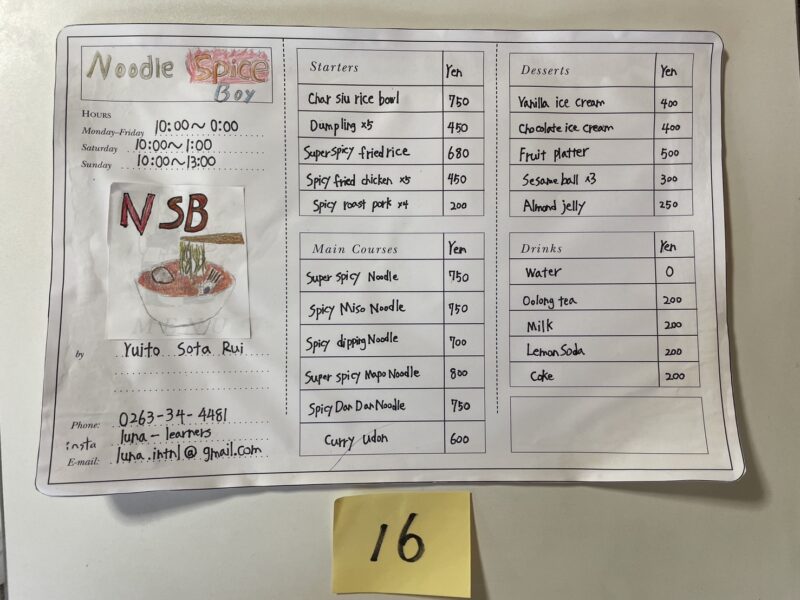 Noodle Spice
Boy
HOURS
Monday–Friday 10:00~0:00
Saturday 10:00~1:00
Sunday 10:00~13:00
NSB
by Yuito Sota Rui
Phone: 0263-34-4481
insta luna-learners
E-mail: luna.intnl@gmail.com
Starters Yen
Char siu rice bowl 750
Dumpling ×5 450
Super spicy fried rice 680
Spicy fried chicken ×5 450
Spicy roast pork ×4 200
Main Courses Yen
Super spicy Noodle 750
Spicy Miso Noodle 750
Spicy dipping Noodle 700
Super spicy Mapo Noodle 800
Spicy Dan Dan Noodle 750
Curry udon 600
Desserts Yen
Vanilla ice cream 400
Chocolate ice cream 400
Fruit platter 500
Sesame ball ×3 300
Almond jelly 250
Drinks Yen
Water 0
Oolong tea 200
Milk 200
Lemon Soda 200
Coke 200
16